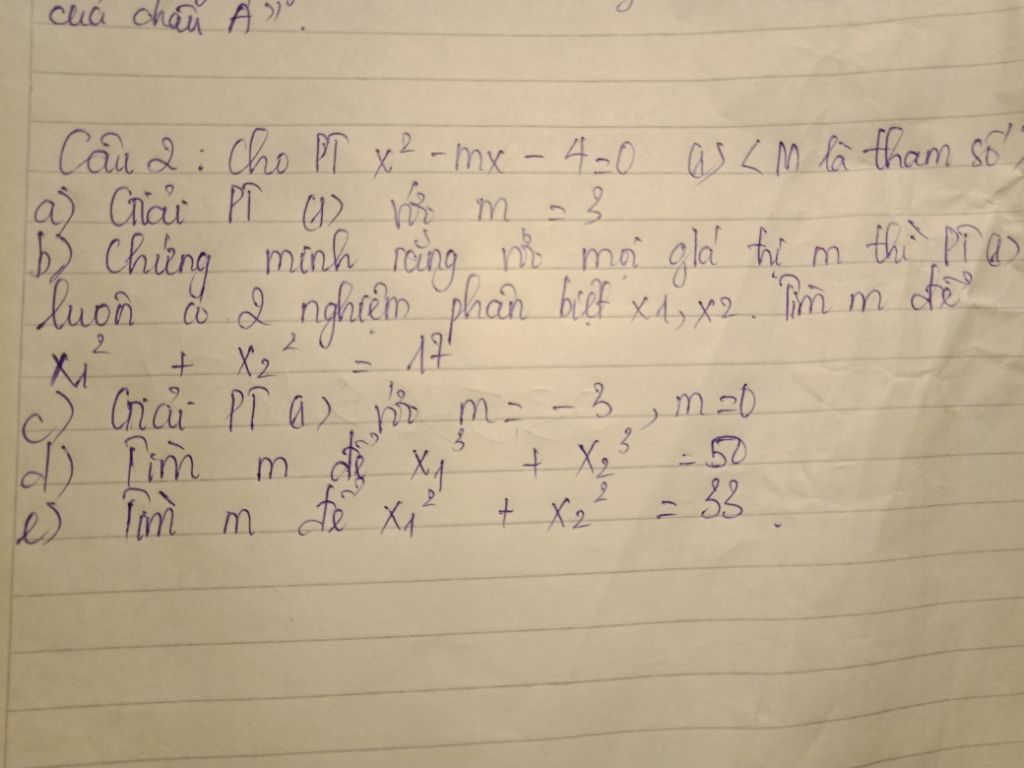 của chấu A".
Câu 2 : Cho PT x² - mx - 4 = 0 (1) < M là tham số >
a) Giải PT (1) với m = 3
b) Chứng minh rằng với mọi giá trị m thì PT (1)
luôn có 2 nghiệm phân biệt x1, x2. Tìm m để
x1² + x2² = 17
c) Giải PT (1) với m = - 3 , m = 0
d) Tìm m để x1³ + x2³ = 50
e) Tìm m để x1² + x2² = 33 .